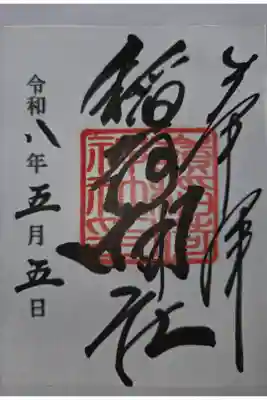 奉拝
稲荷神社
令和八年五月五日